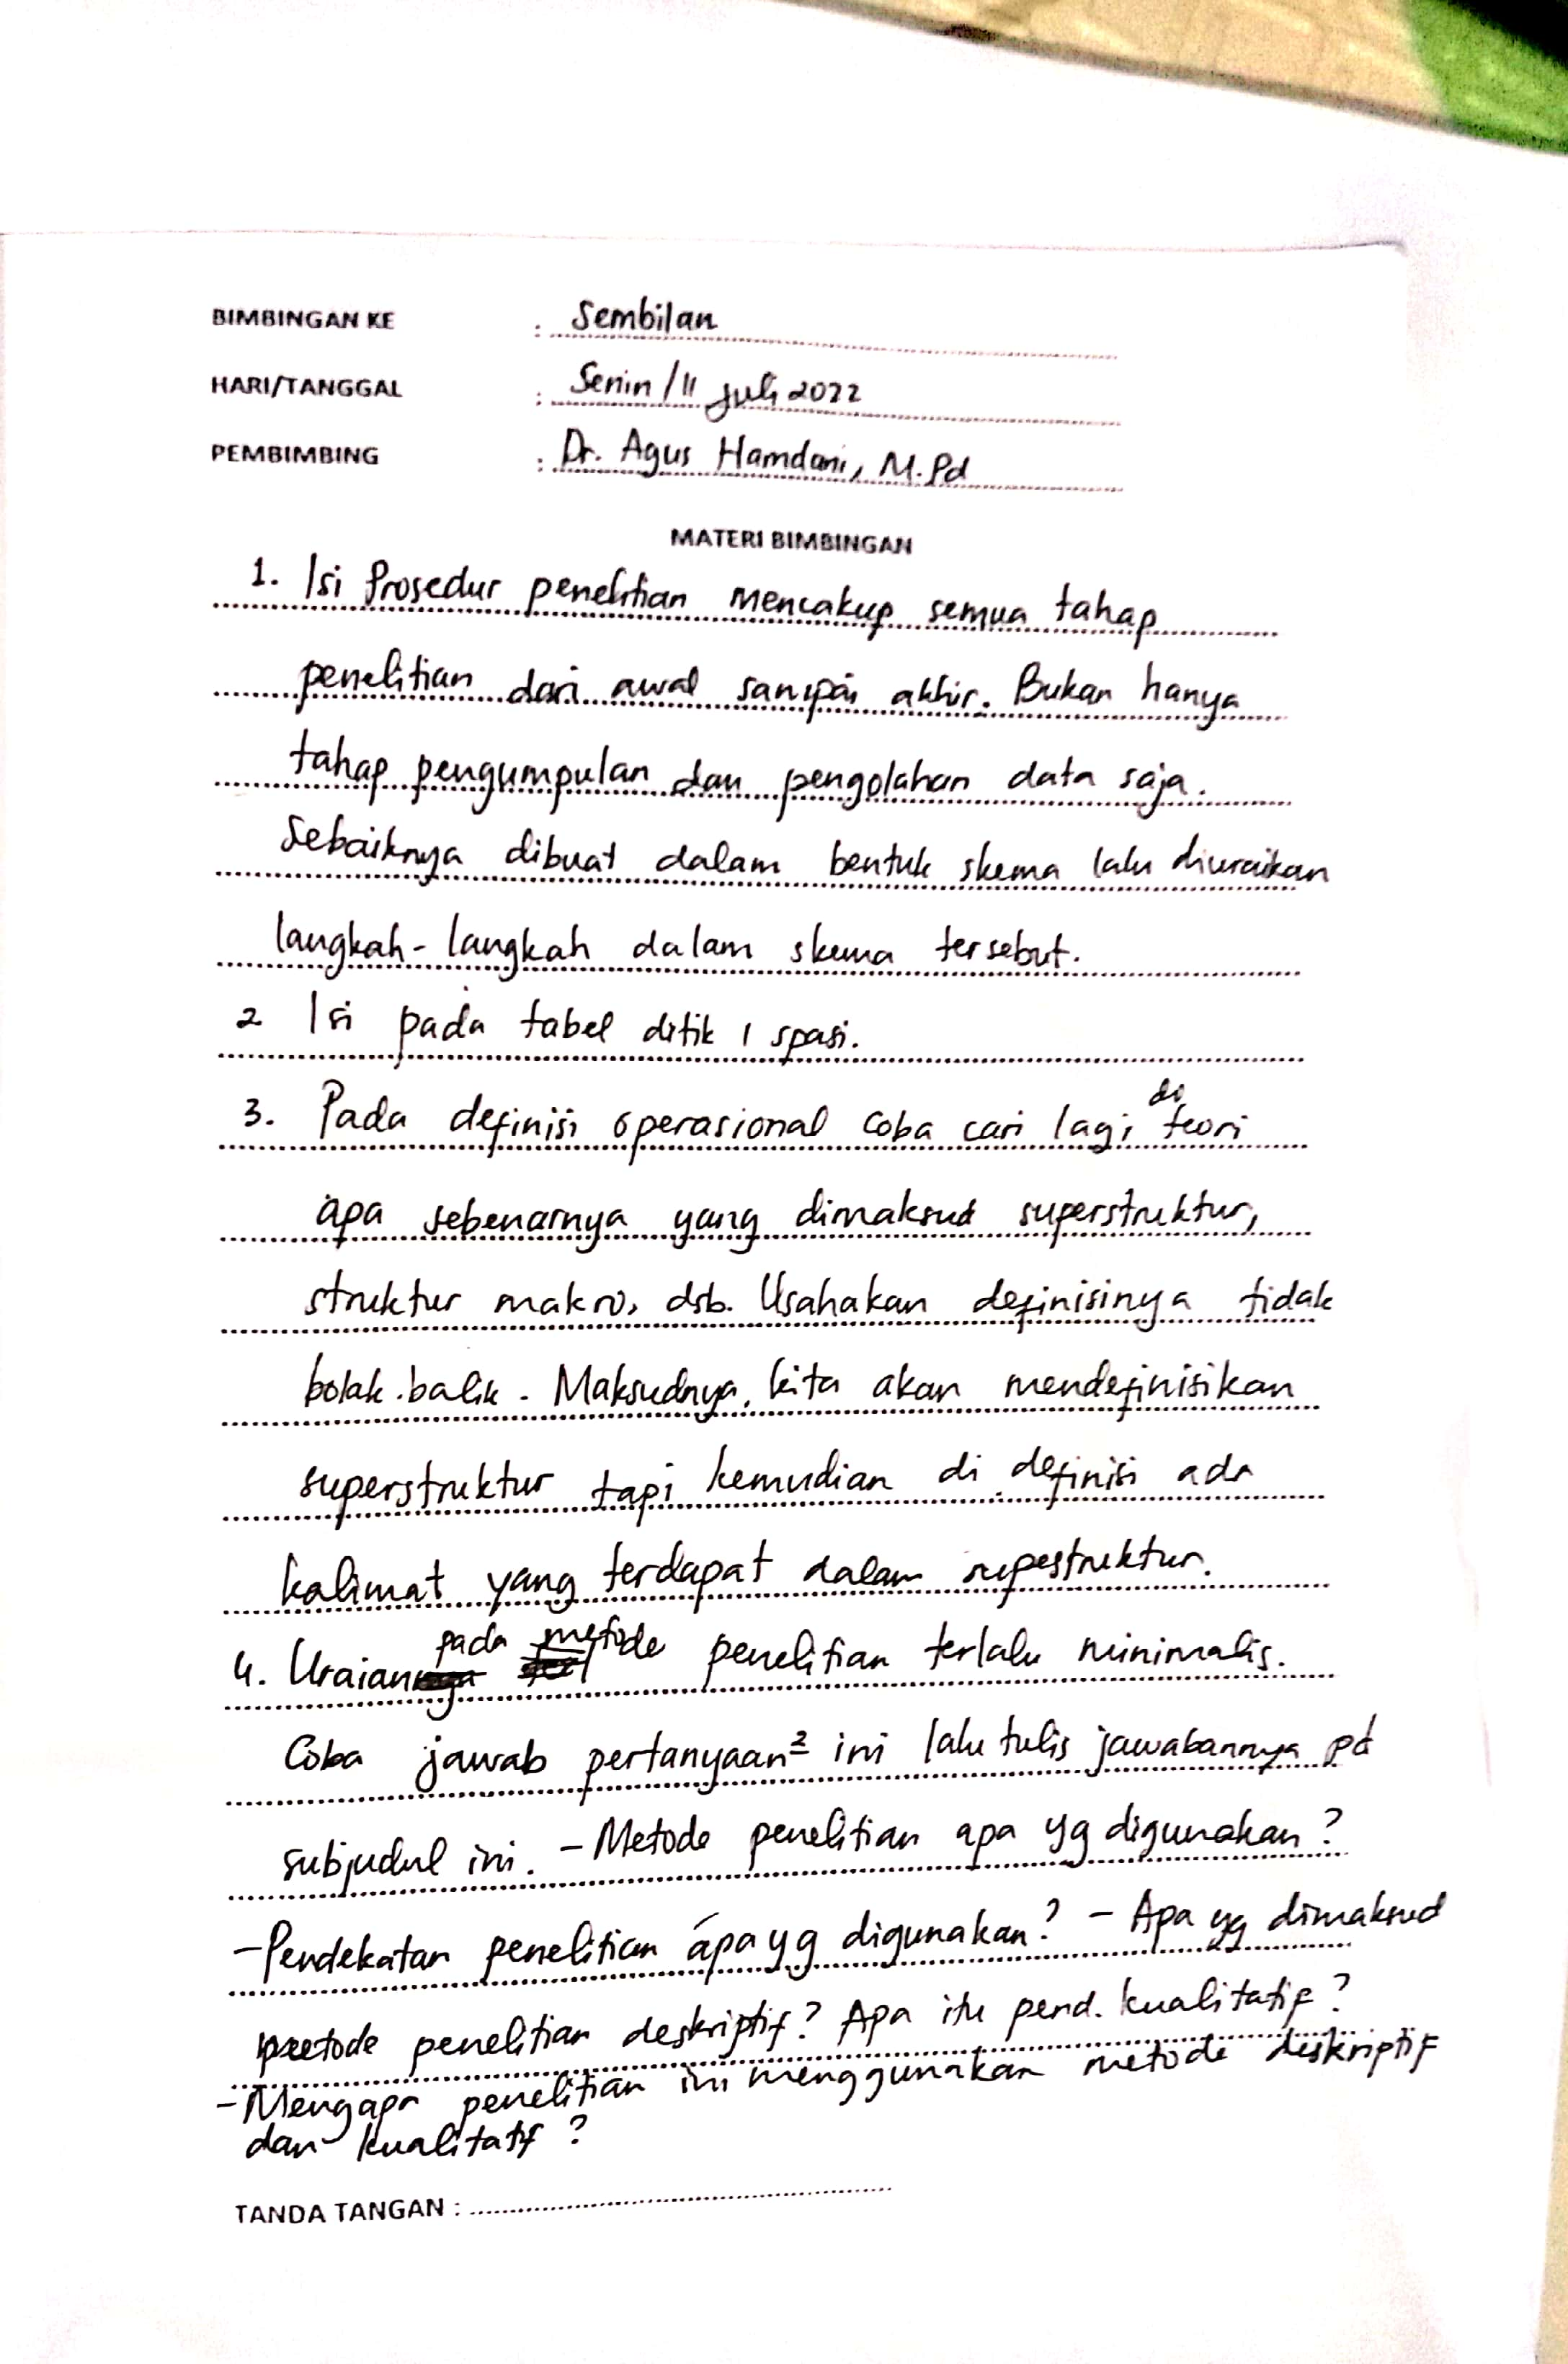 BIMBINGAN KE : Sembilan
HARI/TANGGAL : Senin / 11 Juli 2022
PEMBIMBING : Dr. Agus Hamdani, M.Pd
MATERI BIMBINGAN
1. Isi Prosedur penelitian mencakup semua tahap
penelitian dari awal sampai akhir. Bukan hanya
tahap pengumpulan dan pengolahan data saja.
Sebaiknya dibuat dalam bentuk skema lalu diuraikan
langkah-langkah dalam skema tersebut.
2 Isi pada tabel ditik 1 spasi.
3. Pada definisi operasional coba cari lagi di teori
apa sebenarnya yang dimaksud superstruktur,
struktur makro, dsb. Usahakan definisinya tidak
bolak-balik. Maksudnya, kita akan mendefinisikan
superstruktur tapi kemudian di definisi ada
kalimat yang terdapat dalam supestruktur.
4. Uraian pada metode penelitian terlalu minimalis.
Coba jawab pertanyaan² ini lalu tulis jawabannya pd
subjudul ini. - Metode penelitian apa yg digunakan?
- Pendekatan penelitian apa yg digunakan? - Apa yg dimaksud
metode penelitian deskriptif? Apa itu pend. kualitatif?
- Mengapa penelitian ini menggunakan metode deskriptif
dan kualitatif?
TANDA TANGAN :